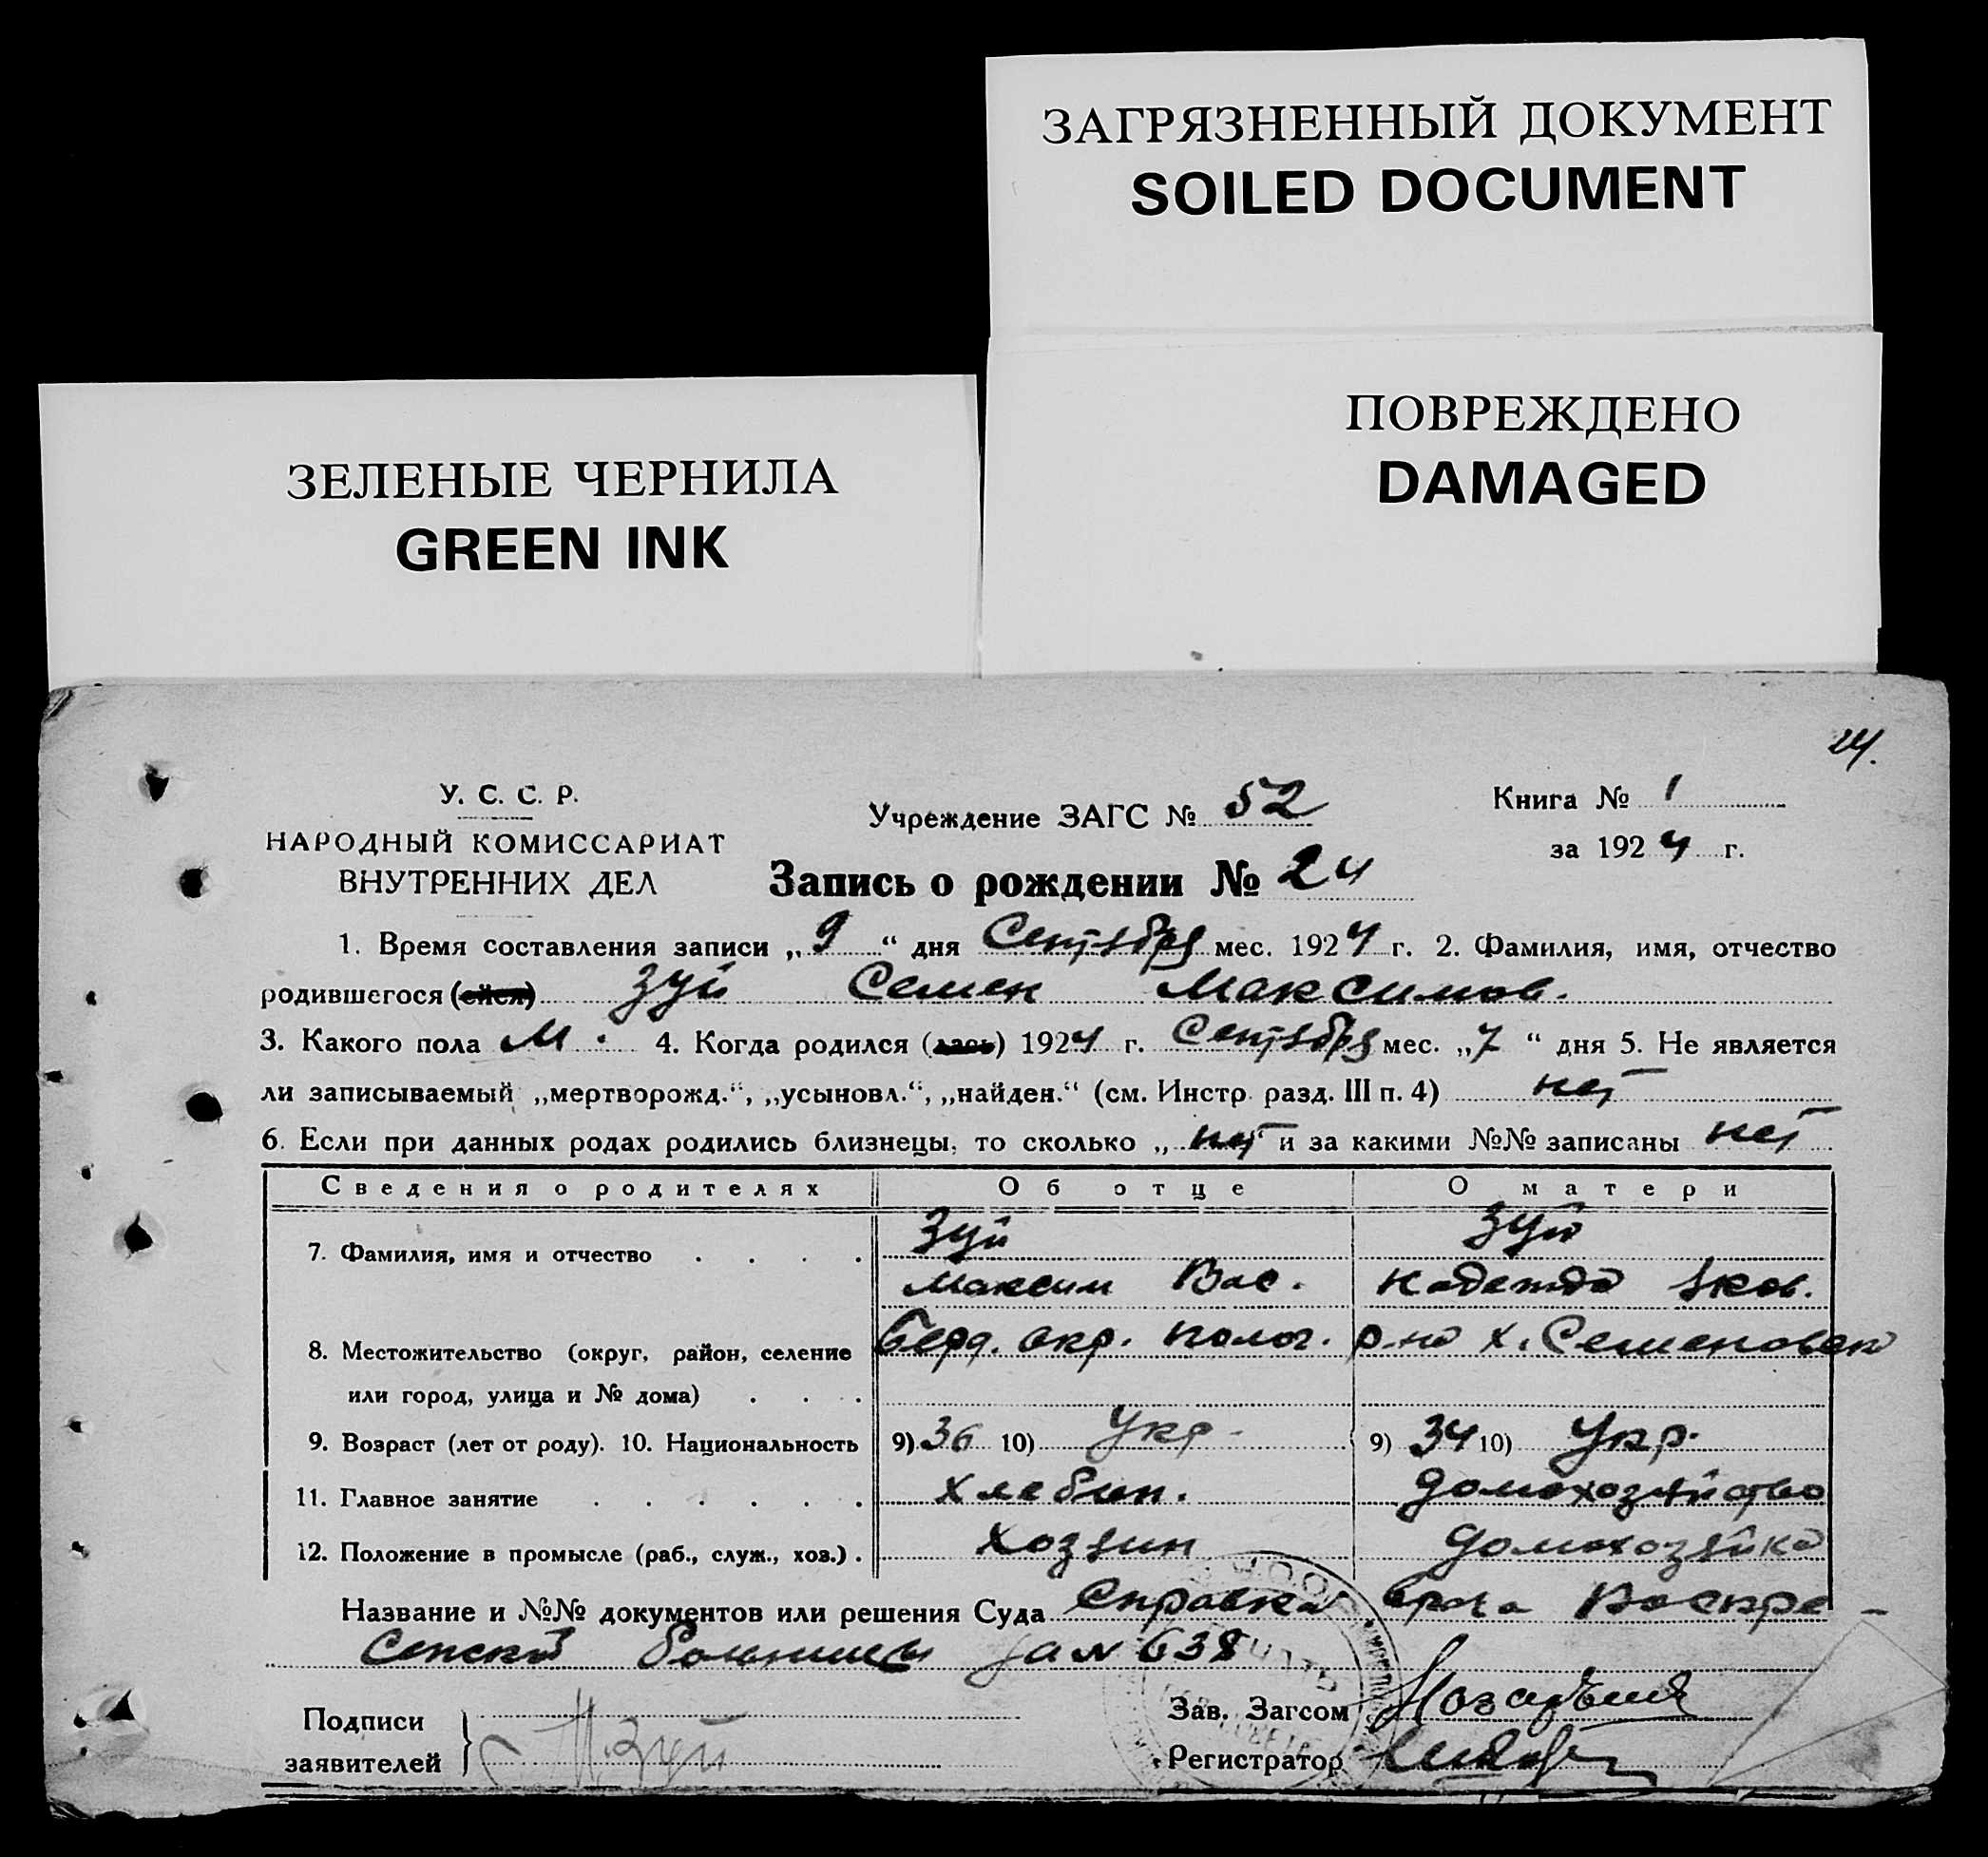 ЗАГРЯЗНЕННЫЙ ДОКУМЕНТ
SOILED DOCUMENT
ПОВРЕЖДЕНО
DAMAGED
ЗЕЛЕНЫЕ ЧЕРНИЛА
GREEN INK
24.
У. С. С. Р.
НАРОДНЫЙ КОМИССАРИАТ
ВНУТРЕННИХ ДЕЛ
Учреждение ЗАГС № 52
Книга № 1
за 1924 г.
Запись о рождении № 24
1. Время составления записи „9“ дня Сентября мес. 1924 г. 2. Фамилия, имя, отчество
родившегося (ейся) Зуй Семен Максимов.
3. Какого пола М. 4. Когда родился (лась) 1924 г. Сентября мес. „7“ дня 5. Не является
ли записываемый „мертворожд.“, „усыновл.“, „найден.“ (см. Инстр. разд. III п. 4) нет
6. Если при данных родах родились близнецы, то сколько „нет“ и за какими №№ записаны нет
Сведения о родителях Об отце О матери
7. Фамилия, имя и отчество . . . . Зуй Зуй
Максим Вас. Надежда Яков.
8. Местожительство (округ, район, селение Берд. окр. Полог. р-на х. Семеновск
или город, улица и № дома) . . .
9. Возраст (лет от роду). 10. Национальность 9) 36 10) Укр. 9) 34 10) Укр.
11. Главное занятие . . . . . . хлебоп. домохозяйство
12. Положение в промысле (раб., служ., хоз.) . хозяин домохозяйка
Название и №№ документов или решения Суда Справка врача Воскре-
сенской больницы за № 638
Подписи
заявителей
Зуй
Зав. Загсом
Регистратор